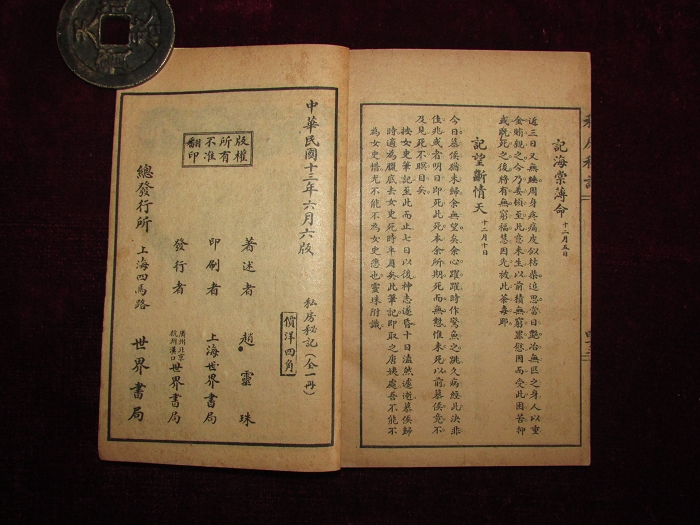 記海棠薄命 十二月五日
近三日又無睡周身疼痛皮似枯柴追思當日艷冶無匹之身人以重
金賄親之今乃委頓至此意未生以前積無窮罪慾因而受此困苦抑
或既死之後將有無窮福慧因先放此荼毒耶
記望斷情天 十二月十日
今日慕侯猶未歸余無望矣余心躍躍時作驚魚之跳久病經此決非
佳兆或者明日即死此死本余所期死而無憝惟未死以前慕侯竟不
及見死不瞑目矣
按女史筆記至此而止七日以後神志遂昏十日溘然遽逝慕侯歸
時適為臘底去女史死時年周矣此筆記即取之唐姨處吾不能不
為女史惜尤不能不為女史悲也靈珠附識
私房秘記
中華民國十三年六月六版
私房秘記(全一冊)
價洋四角
版權所有不准翻印
著述者 趙靈珠
印刷者 上海世界書局
發行者 廣州北京杭州漢口 世界書局
總發行所 上海四馬路 世界書局